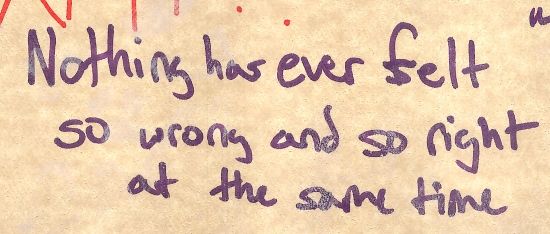 Nothing has ever felt
so wrong and so right
at the same time